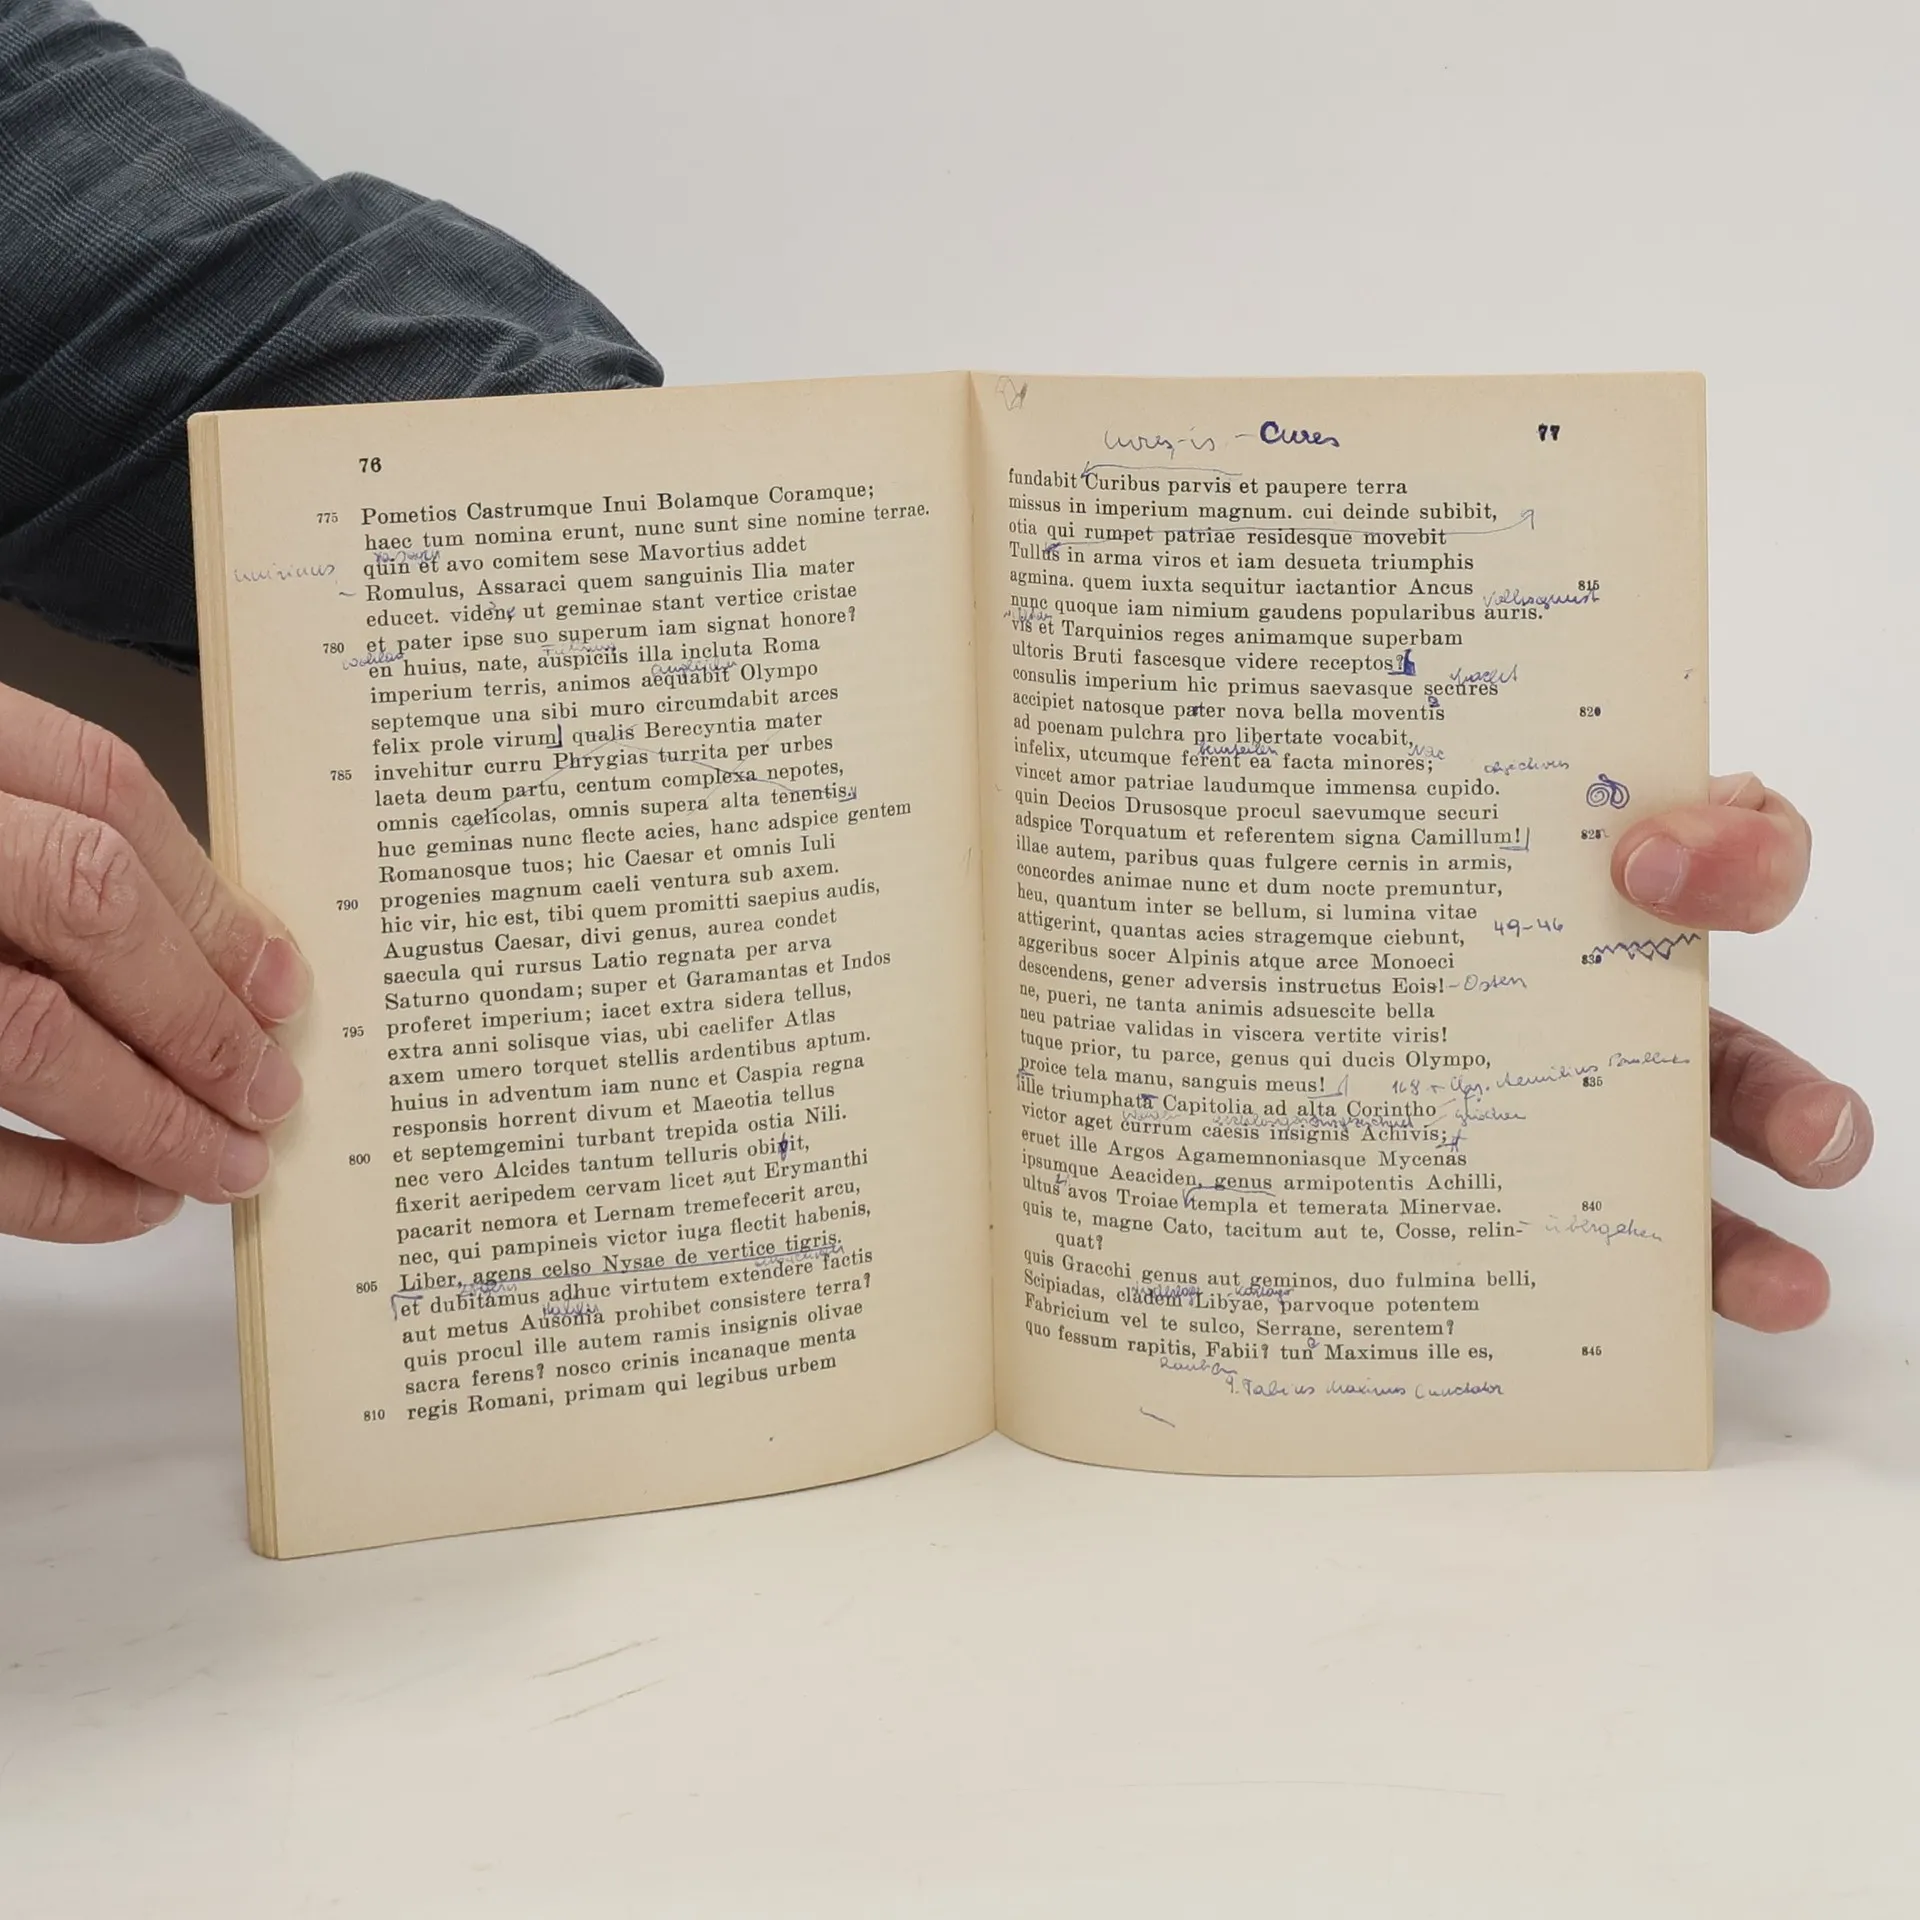 76
775 Pometios Castrumque Inui Bolamque Coramque;
haec tum nomina erunt, nunc sunt sine nomine terrae.
quin et avo comitem sese Mavortius addet
Romulus, Assaraci quem sanguinis Ilia mater
educet. viden, ut geminae stant vertice cristae
780 et pater ipse suo superum iam signat honore?
en huius, nate, auspiciis illa incluta Roma
imperium terris, animos aequabit Olympo
septemque una sibi muro circumdabit arces
felix prole virum, qualis Berecyntia mater
785 invehitur curru Phrygias turrita per urbes
laeta deum partu, centum complexa nepotes,
omnis caelicolas, omnis supera alta tenentis.
huc geminas nunc flecte acies, hanc adspice gentem
Romanosque tuos; hic Caesar et omnis Iuli
790 progenies magnum caeli ventura sub axem.
hic vir, hic est, tibi quem promitti saepius audis,
Augustus Caesar, divi genus, aurea condet
saecula qui rursus Latio regnata per arva
Saturno quondam; super et Garamantas et Indos
795 proferet imperium; iacet extra sidera tellus,
extra anni solisque vias, ubi caelifer Atlas
axem umero torquet stellis ardentibus aptum.
huius in adventum iam nunc et Caspia regna
responsis horrent divum et Maeotia tellus
800 et septemgemini turbant trepida ostia Nili.
nec vero Alcides tantum telluris obivit,
fixerit aeripedem cervam licet aut Erymanthi
pacarit nemora et Lernam tremefecerit arcu,
nec, qui pampineis victor iuga flectit habenis,
805 Liber, agens celso Nysae de vertice tigris.
et dubitamus adhuc virtutem extendere factis
aut metus Ausonia prohibet consistere terra?
quis procul ille autem ramis insignis olivae
sacra ferens? nosco crinis incanaque menta
810 regis Romani, primam qui legibus urbem
Cures, is - Cures
77
fundabit Curibus parvis et paupere terra
missus in imperium magnum. cui deinde subibit,
otia qui rumpet patriae residesque movebit
Tullus in arma viros et iam desueta triumphis
agmina. quem iuxta sequitur iactantior Ancus 815
Volksgunst
nunc quoque iam nimium gaudens popularibus auris.
vis et Tarquinios reges animamque superbam
ultoris Bruti fascesque videre receptos?
consulis imperium hic primus saevasque secures
accipiet natosque pater nova bella moventis 820
ad poenam pulchra pro libertate vocabit,
infelix, utcumque ferent ea facta minores;
vincet amor patriae laudumque immensa cupido.
quin Decios Drusosque procul saevumque securi
adspice Torquatum et referentem signa Camillum! 825
illae autem, paribus quas fulgere cernis in armis,
concordes animae nunc et dum nocte premuntur,
heu, quantum inter se bellum, si lumina vitae
attigerint, quantas acies stragemque ciebunt, 49-46
aggeribus socer Alpinis atque arce Monoeci 830
descendens, gener adversis instructus Eois! - Osten
ne, pueri, ne tanta animis adsuescite bella
neu patriae validas in viscera vertite viris!
tuque prior, tu parce, genus qui ducis Olympo,
proice tela manu, sanguis meus! 835
ille triumphata Capitolia ad alta Corintho
victor aget currum caesis insignis Achivis;
eruet ille Argos Agamemnoniasque Mycenas
ipsumque Aeaciden, genus armipotentis Achilli,
ultus avos Troiae templa et temerata Minervae. 840
quis te, magne Cato, tacitum aut te, Cosse, relin- übergehen
quat?
quis Gracchi genus aut geminos, duo fulmina belli,
Scipiadas, cladem Libyae, parvoque potentem
Fabricium vel te sulco, Serrane, serentem?
quo fessum rapitis, Fabii? tun Maximus ille es, 845
Q. Fabius Maximus Cunctator